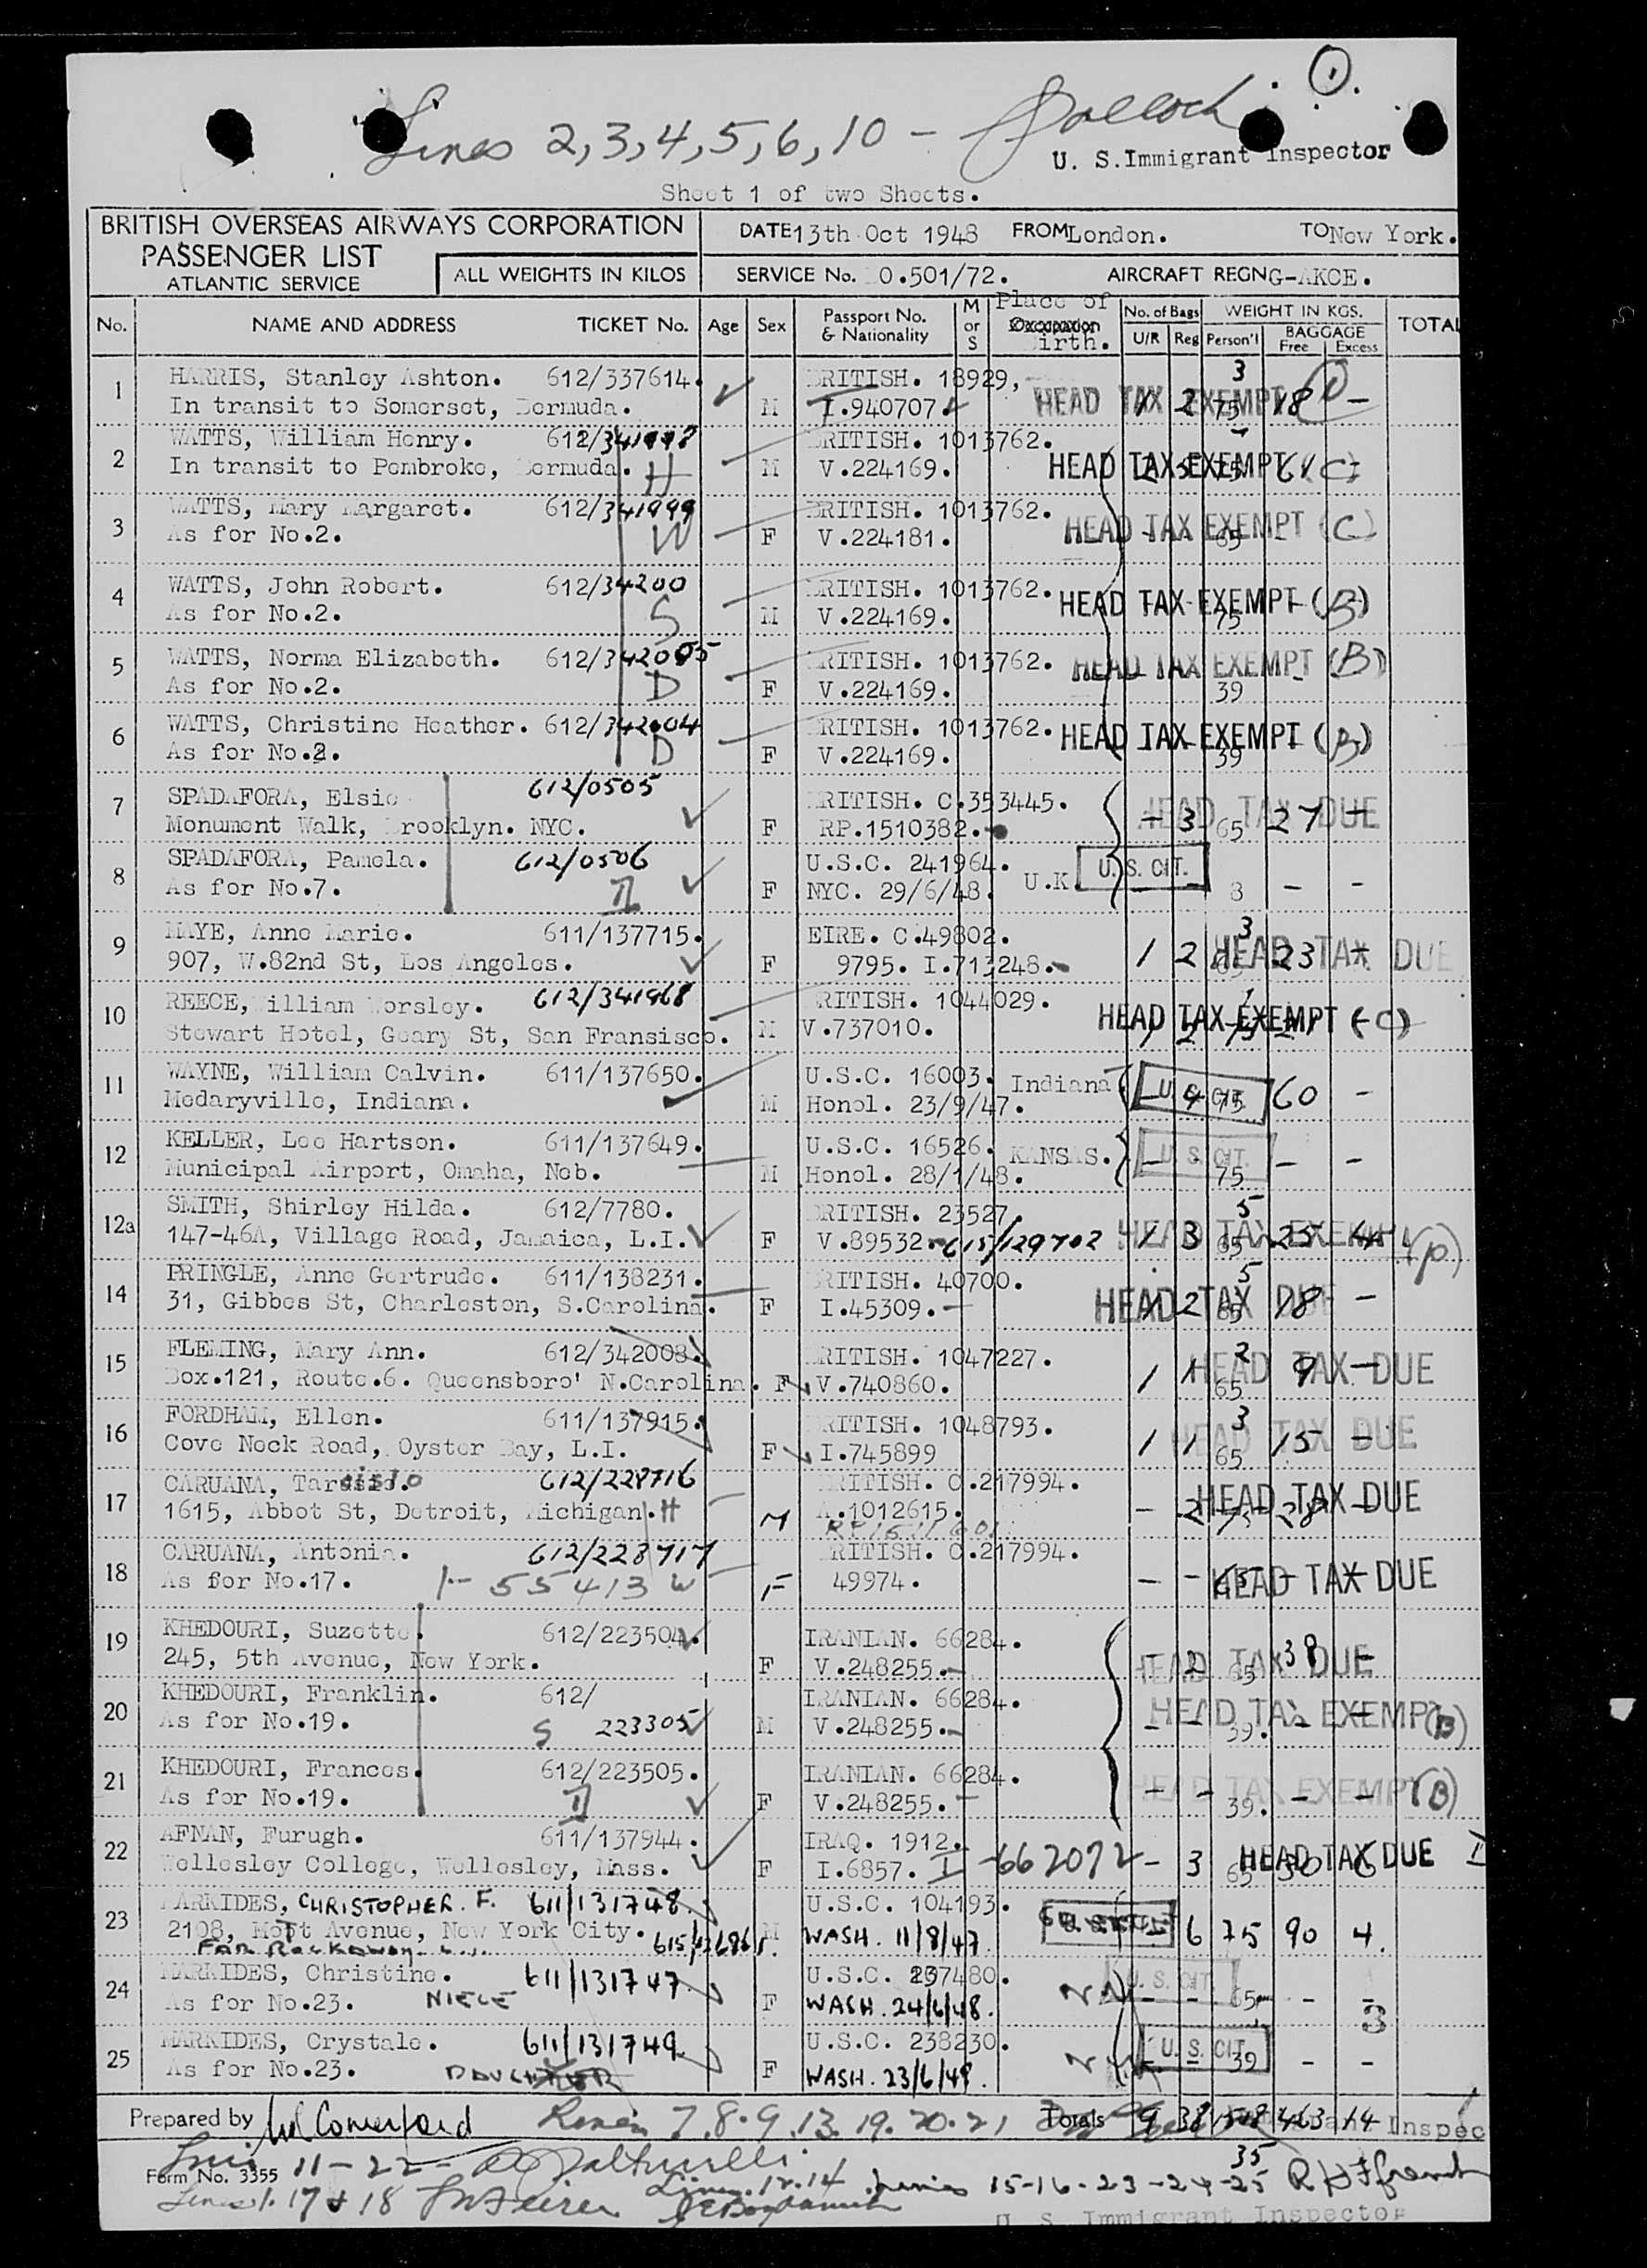 1.
Lines 2,3,4,5,6,10 -
U. S. Immigrant Inspector
Sheet 1 of two Sheets.
BRITISH OVERSEAS AIRWAYS CORPORATION
PASSENGER LIST
ATLANTIC SERVICE
ALL WEIGHTS IN KILOS
DATE 13th Oct 1948 FROM London. TO New York.
SERVICE No. 0.501/72. AIRCRAFT REGN G-AKCE.
No. NAME AND ADDRESS TICKET No. Age Sex Passport No. & Nationality M or S Place of Birth. No. of Bags U/R Reg WEIGHT IN KGS. Person'l BAGGAGE Free Excess TOTAL
1 HARRIS, Stanley Ashton. 612/337614. BRITISH. 18929, 3
In transit to Somerset, Bermuda. M I.940707. HEAD TAX EXEMPT 1 2 75 18 -
2 WATTS, William Henry. BRITISH. 1013762.
In transit to Pembroke, Bermuda. H M V.224169. HEAD TAX EXEMPT (C)
3 WATTS, Mary Margaret. 612/341999 BRITISH. 1013762.
As for No.2. W F V.224181. HEAD TAX EXEMPT (C) 65
4 WATTS, John Robert. 612/34200 BRITISH. 1013762.
As for No.2. S M V.224169. HEAD TAX EXEMPT (B) 75
5 WATTS, Norma Elizabeth. BRITISH. 1013762. HEAD TAX EXEMPT (B)
As for No.2. D F V.224169. 39
6 WATTS, Christine Heather. 612/342004 BRITISH. 1013762. HEAD TAX EXEMPT (B)
As for No.2. D F V.224169. 39
7 SPADAFORA, Elsie 612/0505 BRITISH. C.353445. HEAD TAX DUE
Monument Walk, Brooklyn. NYC. F RP.1510382. - 3 65 27 -
8 SPADAFORA, Pamela. 612/0506 U.S.C. 241964. U.S. CIT.
As for No.7. II F NYC. 29/6/48. U.K. - 8 - -
9 MAYE, Anne Marie. 611/137715. EIRE. C.49802. 3
907, W.82nd St, Los Angeles. F 9795. I.713248. 1 2 65 23 - HEAD TAX DUE
10 REECE, William Worsley. 612/341968 BRITISH. 1044029. 1
Stewart Hotel, Geary St, San Fransisco. M V.737010. HEAD TAX EXEMPT (C)
11 WAYNE, William Calvin. 611/137650. U.S.C. 16003. Indiana U.S. CIT.
Medaryville, Indiana. M Honol. 23/9/47. - 4 75 60 -
12 KELLER, Leo Hartson. 611/137649. U.S.C. 16526. KANSAS. U.S. CIT.
Municipal Airport, Omaha, Neb. M Honol. 28/1/48. - - 75 - -
12a SMITH, Shirley Hilda. 612/7780. BRITISH. 23527. 5
147-46A, Village Road, Jamaica, L.I. F V.89532. 615/129702 1 3 65 25 HEAD TAX EXEMPT (P)
14 PRINGLE, Anne Gertrude. 611/138231. BRITISH. 40700. 5
31, Gibbes St, Charleston, S.Carolina. F I.45309. - HEAD TAX DUE 1 2 65 18 -
15 FLEMING, Mary Ann. 612/342008. BRITISH. 1047227. 2
Box.121, Route.6. Queensboro' N.Carolina. F V.740860. 1 1 65 9 - HEAD TAX DUE
16 FORDHAM, Ellen. 611/137915. BRITISH. 1048793. 3
Cove Neck Road, Oyster Bay, L.I. F I.745899 1 1 65 15 - HEAD TAX DUE
17 CARUANA, Tarcisio. 612/228716 BRITISH. C.217994.
1615, Abbot St, Detroit, Michigan. H M A.1012615. - 2 75 28 - HEAD TAX DUE
18 CARUANA, Antonia. 612/228717 BRITISH. C.217994.
As for No.17. 55413 W F 49974. - - 65 - - HEAD TAX DUE
19 KHEDOURI, Suzette. 612/223504. IRANIAN. 66284.
245, 5th Avenue, New York. F V.248255. - 2 65 38 - HEAD TAX DUE
20 KHEDOURI, Franklin. 612/ IRANIAN. 66284.
As for No.19. S 223305 M V.248255. - - 39. - - HEAD TAX EXEMPT (B)
21 KHEDOURI, Frances. 612/223505. IRANIAN. 66284.
As for No.19. II F V.248255. - - 39. - - HEAD TAX EXEMPT (B)
22 AFNAN, Furugh. 611/137944. IRAQ. 1912.
Wellesley College, Wellesley, Mass. F I.6857. I-662072 - 3 65 30 6 HEAD TAX DUE
23 MARKIDES, CHRISTOPHER. F. 611/131748. U.S.C. 104193.
2108, Mott Avenue, New York City. M WASH. 11/8/47. - 6 75 90 4.
FAR Rockaway
24 MARKIDES, Christine. 611/131747. U.S.C. 237480. U.S. CIT.
As for No.23. NIECE F WASH. 24/6/48. - - 65 - -
25 MARKIDES, Crystale. 611/131749. U.S.C. 238230. U.S. CIT.
As for No.23. DAUGHTER F WASH. 23/6/48. - - 39 - -
Prepared by 7.8.9.13.19.20.21 Totals 9 38 1508 463 14 Inspec
35
11-22-
Form No. 3355 Lines 12.14 Lines 15-16-23-24-25
Lines 1. 17 & 18
U. S. Immigrant Inspector